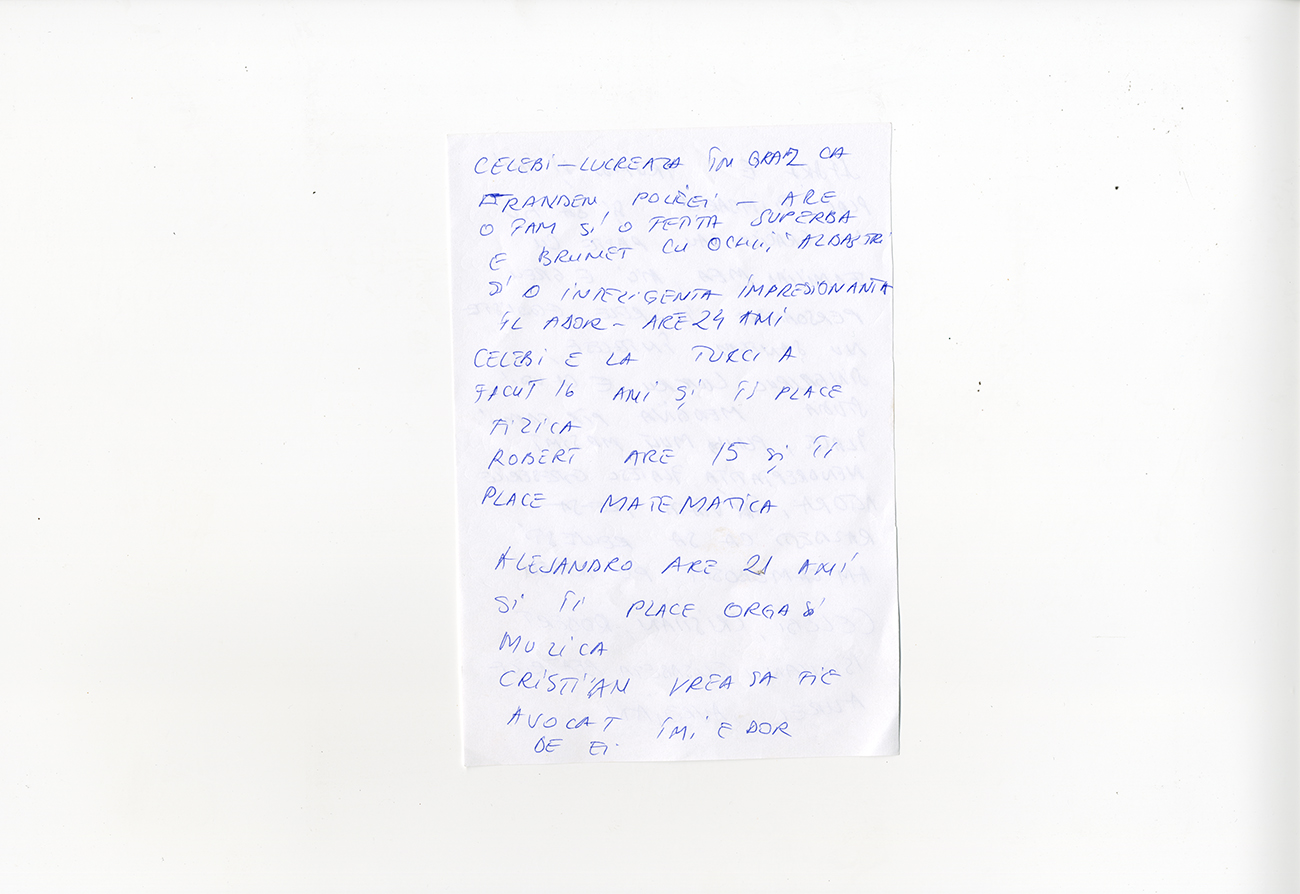 CELEBI – LUCREAZA ÎN GRAZ CA
POLIZEI – ARE
O FAM SI O FETITA SUPERBA
E BRUNET CU OCHII ALBAȘTRI
SI O INTELIGENTA IMPRESIONANTA
ÎL ADOR – ARE 24 ANI
CELEBI E LA TURCIA
FACUT 16 ANI ȘI ÎI PLACE
FIZICA
ROBERT ARE 15 ȘI ÎI
PLACE MATEMATICA
ALEJANDRO ARE 21 ANI
SI ÎI PLACE ORGA SI
MUZICA
CRISTIAN VREA SA FIE
AVOCAT ÎMI E DOR
DE EI.